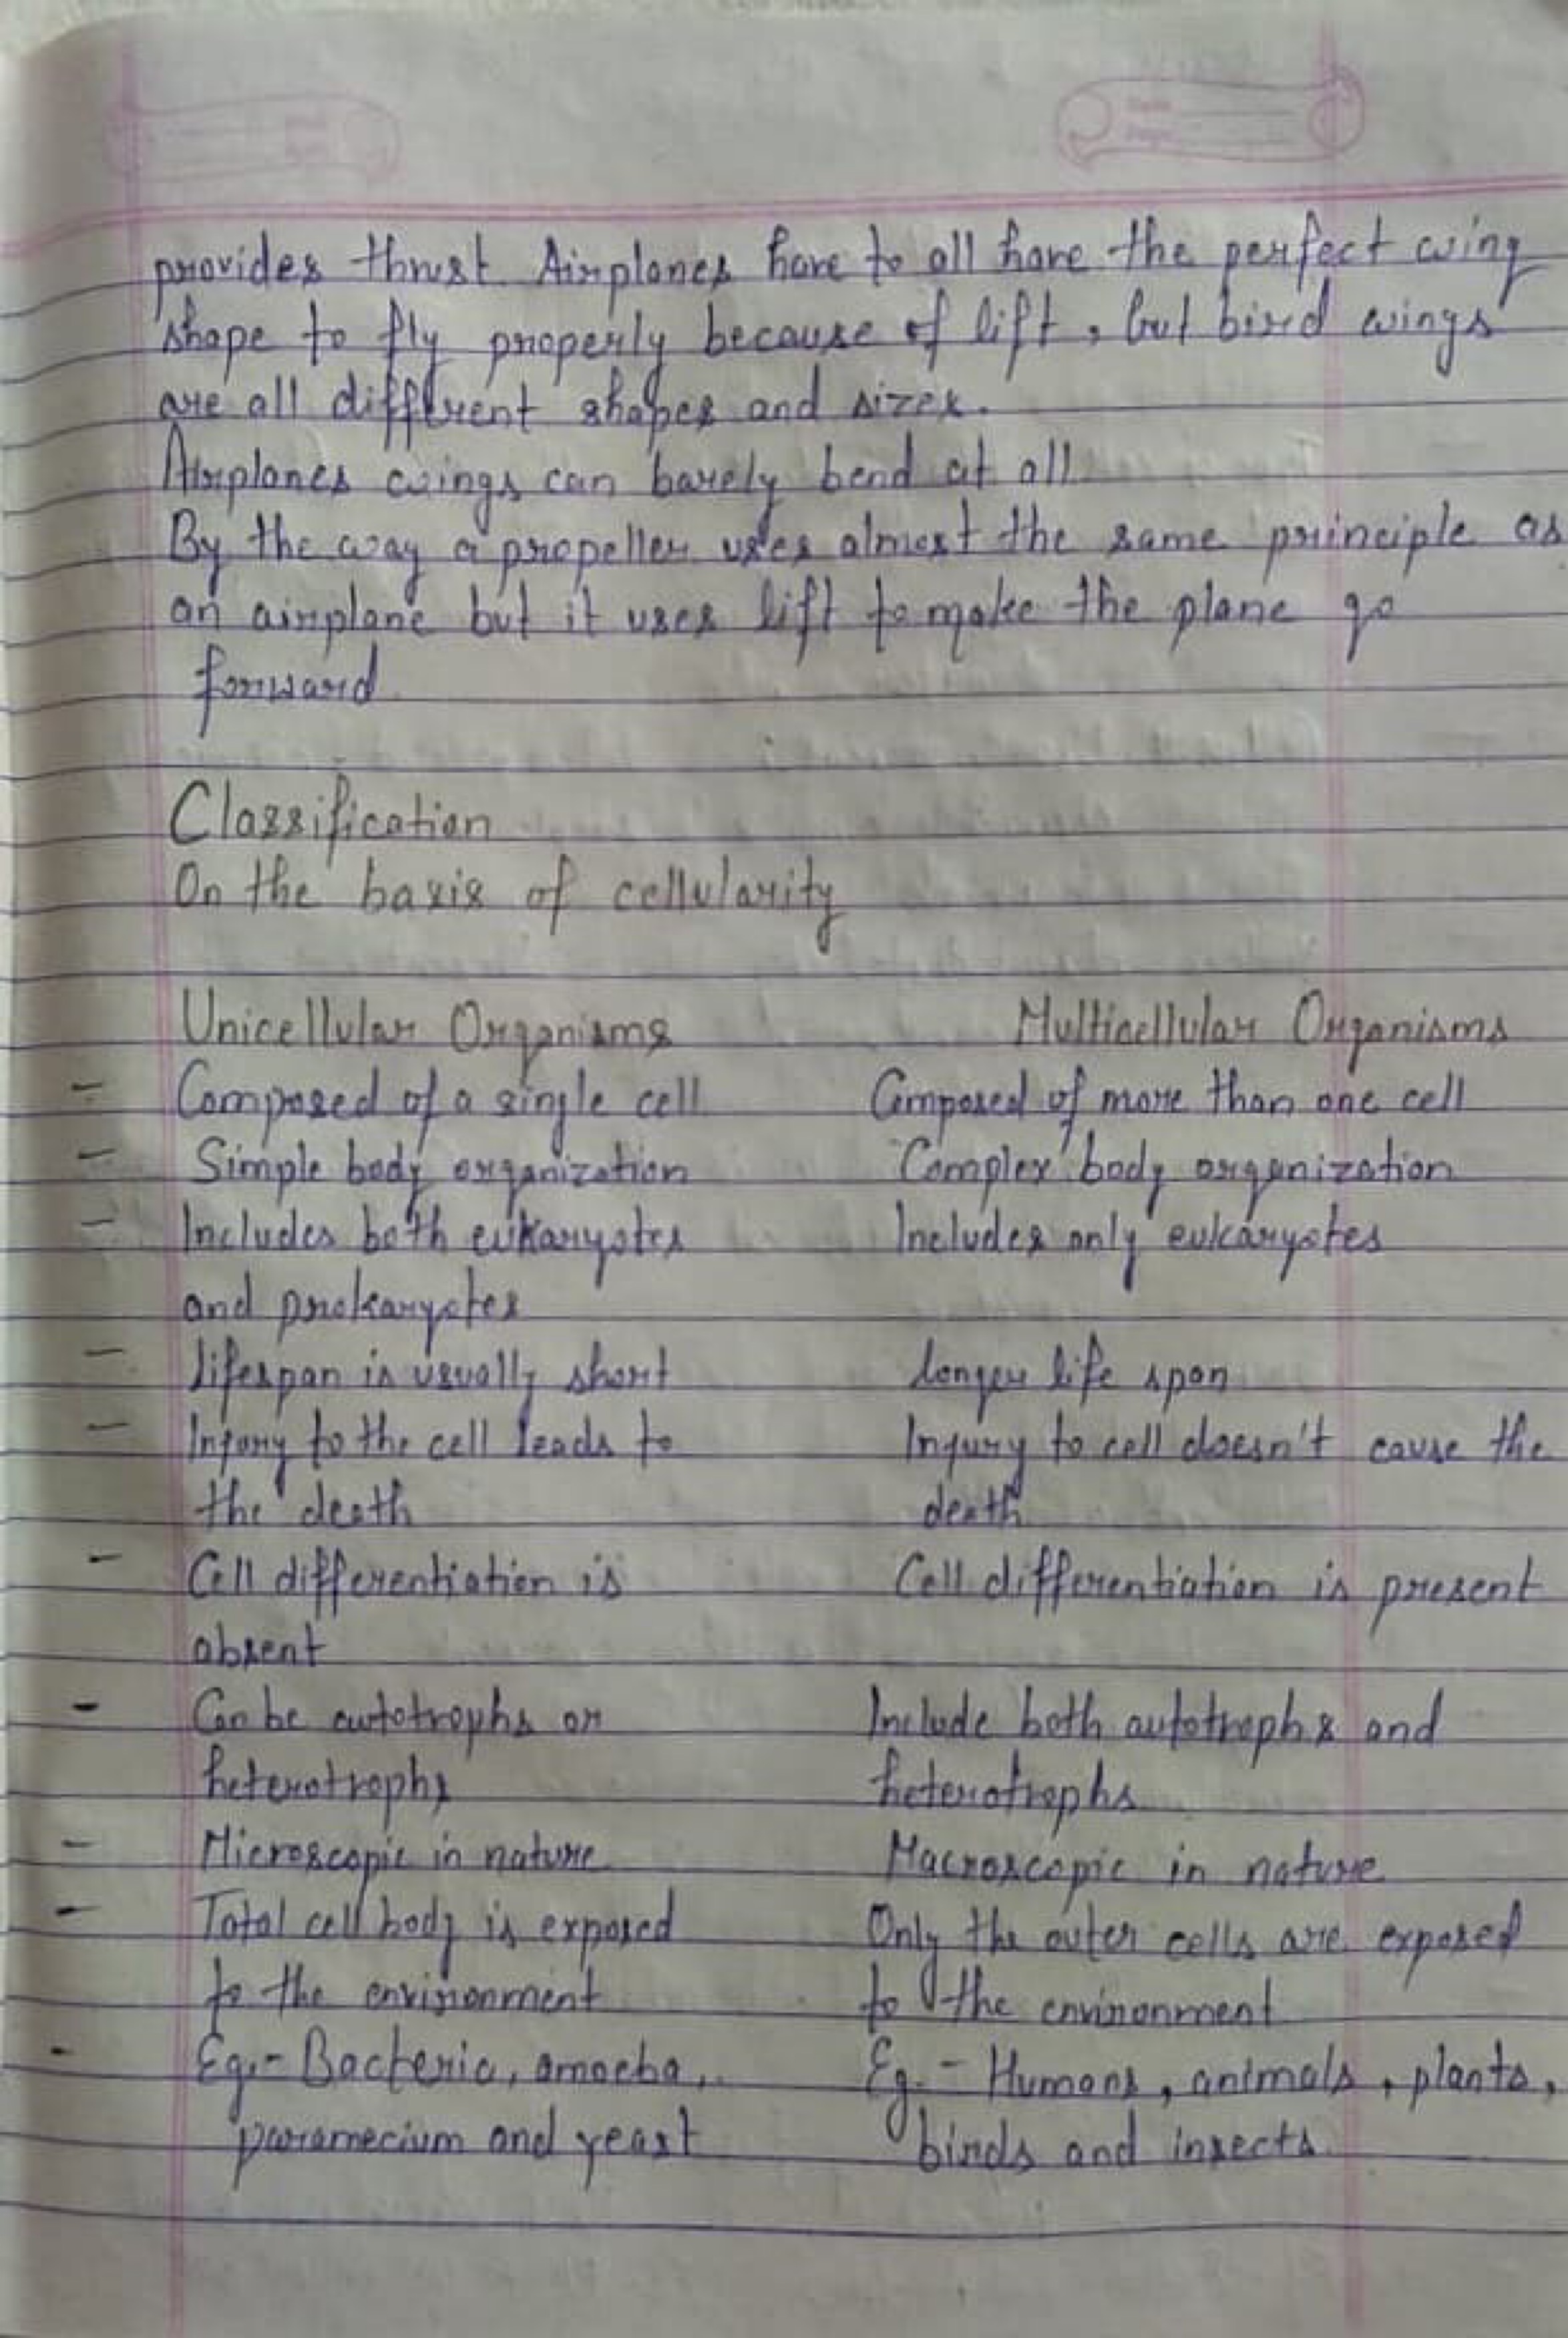 provides thrust. Airplanes have to all have the perfect wing
shape to fly properly because of lift, but bird wings
are all different shapes and sizes.
Airplanes wings can barely bend at all
By the way a propeller uses almost the same principle as
an airplane but it uses lift to make the plane go
forward
Classification
On the basis of cellularity
Unicellular Organisms Multicellular Organisms
- Composed of a single cell Composed of more than one cell
- Simple body organization Complex body organization
- Includes both eukaryotes Includes only eukaryotes
and prokaryotes
- lifespan is usually short longer life span
- Injury to the cell leads to Injury to cell doesn't cause the
the death death
- Cell differentiation is Cell differentiation is present
absent
- Can be autotrophs or Include both autotrophs and
heterotrophs heterotrophs
- Microscopic in nature Macroscopic in nature
- Total cell body is exposed Only the outer cells are exposed
to the environment to the environment
- Eg.- Bacteria, amoeba, Eg.- Humans, animals, plants,
paramecium and yeast birds and insects